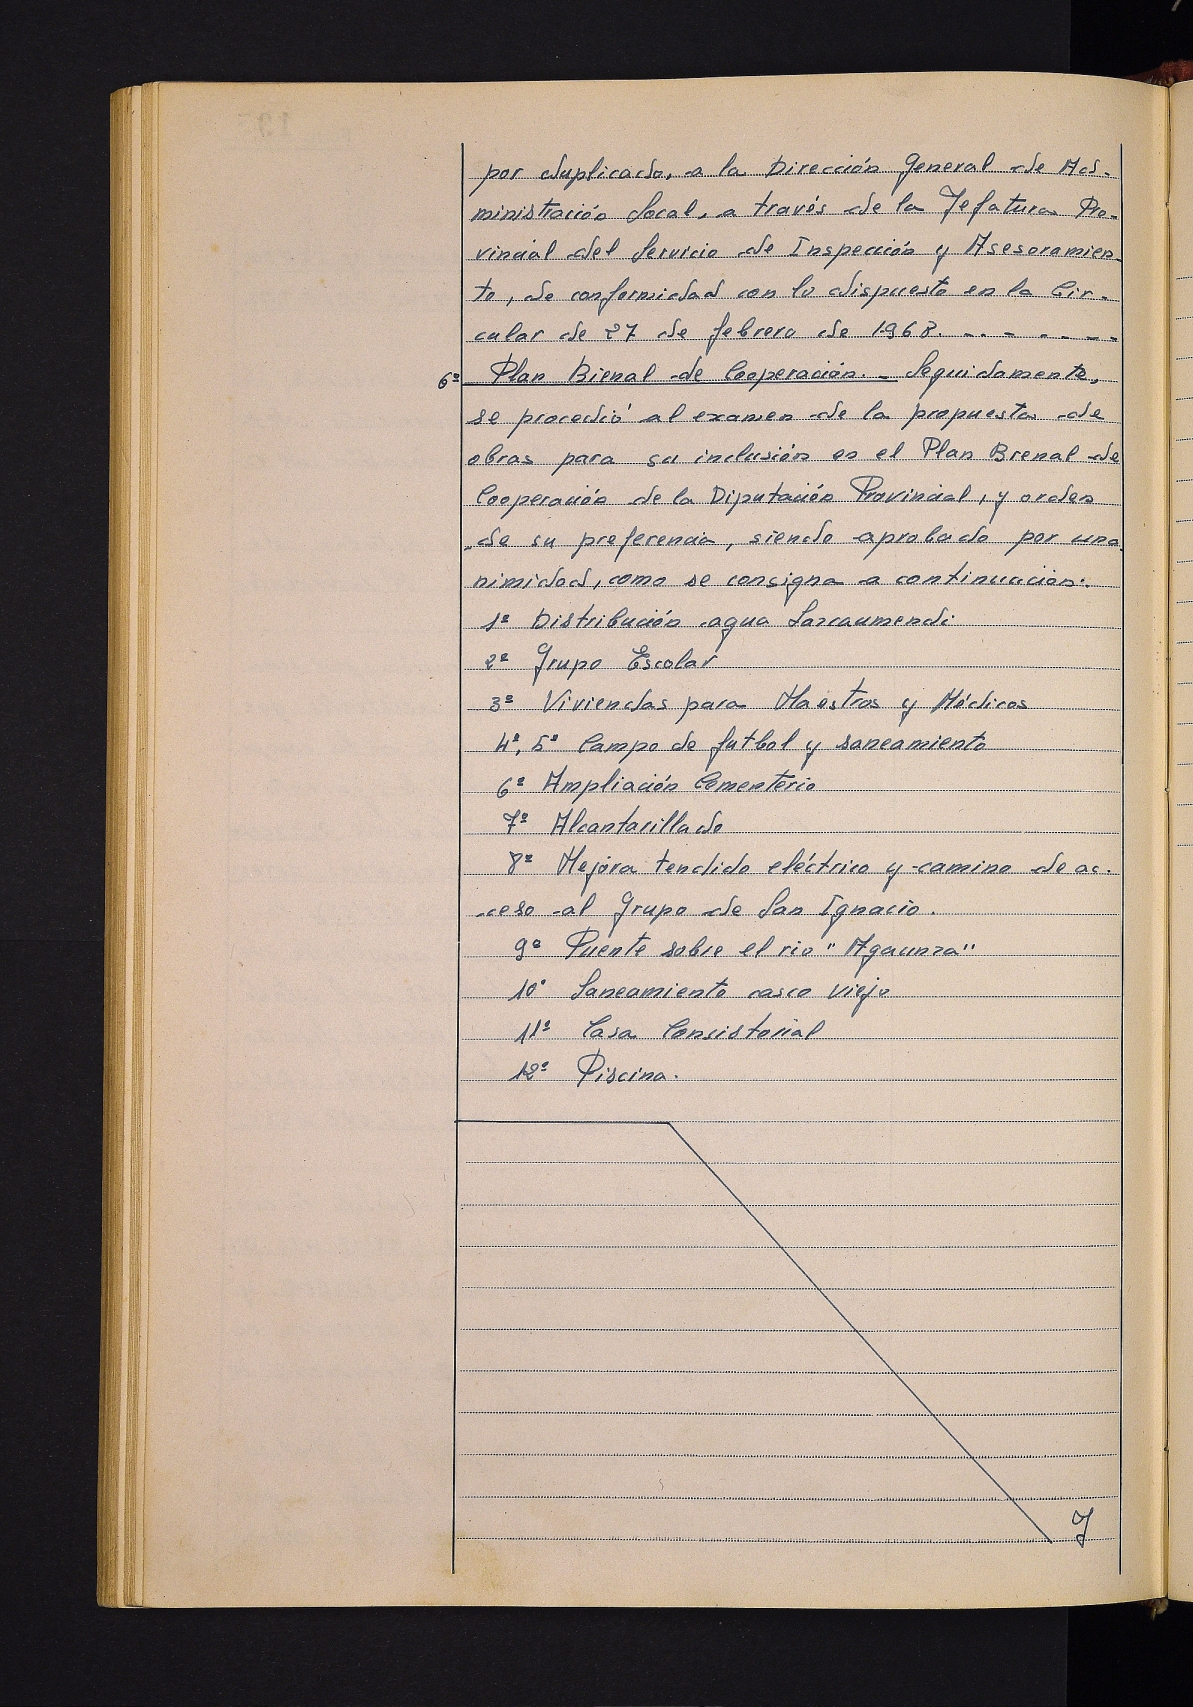 por duplicado, a la Dirección General de Ad-
ministración Local, a través de la Jefatura Pro-
vincial del Servicio de Inspección y Asesoramien-
to, de conformidad con lo dispuesto en la Cir-
cular de 27 de febrero de 1968. - - - - - - -
6º Plan Bienal de Cooperación.- Seguidamente,
se procedió al examen de la propuesta de
obras para su inclusión en el Plan Bienal de
Cooperación de la Diputación Provincial, y orden
de su preferencia, siendo aprobado por una-
nimidad, como se consigna a continuación:
1º Distribución agua Sarcaumendi
2º Grupo Escolar
3º Viviendas para Maestros y Médicos
4º, 5º Campo de futbol y saneamiento
6º Ampliación Cementerio
7º Alcantarillado
8º Mejora tendido eléctrico y camino de ac-
ceso al Grupo de San Ignacio.
9º Puente sobre el rio "Agaunza"
10º Saneamiento casco viejo
11º Casa Consistorial
12º Piscina.